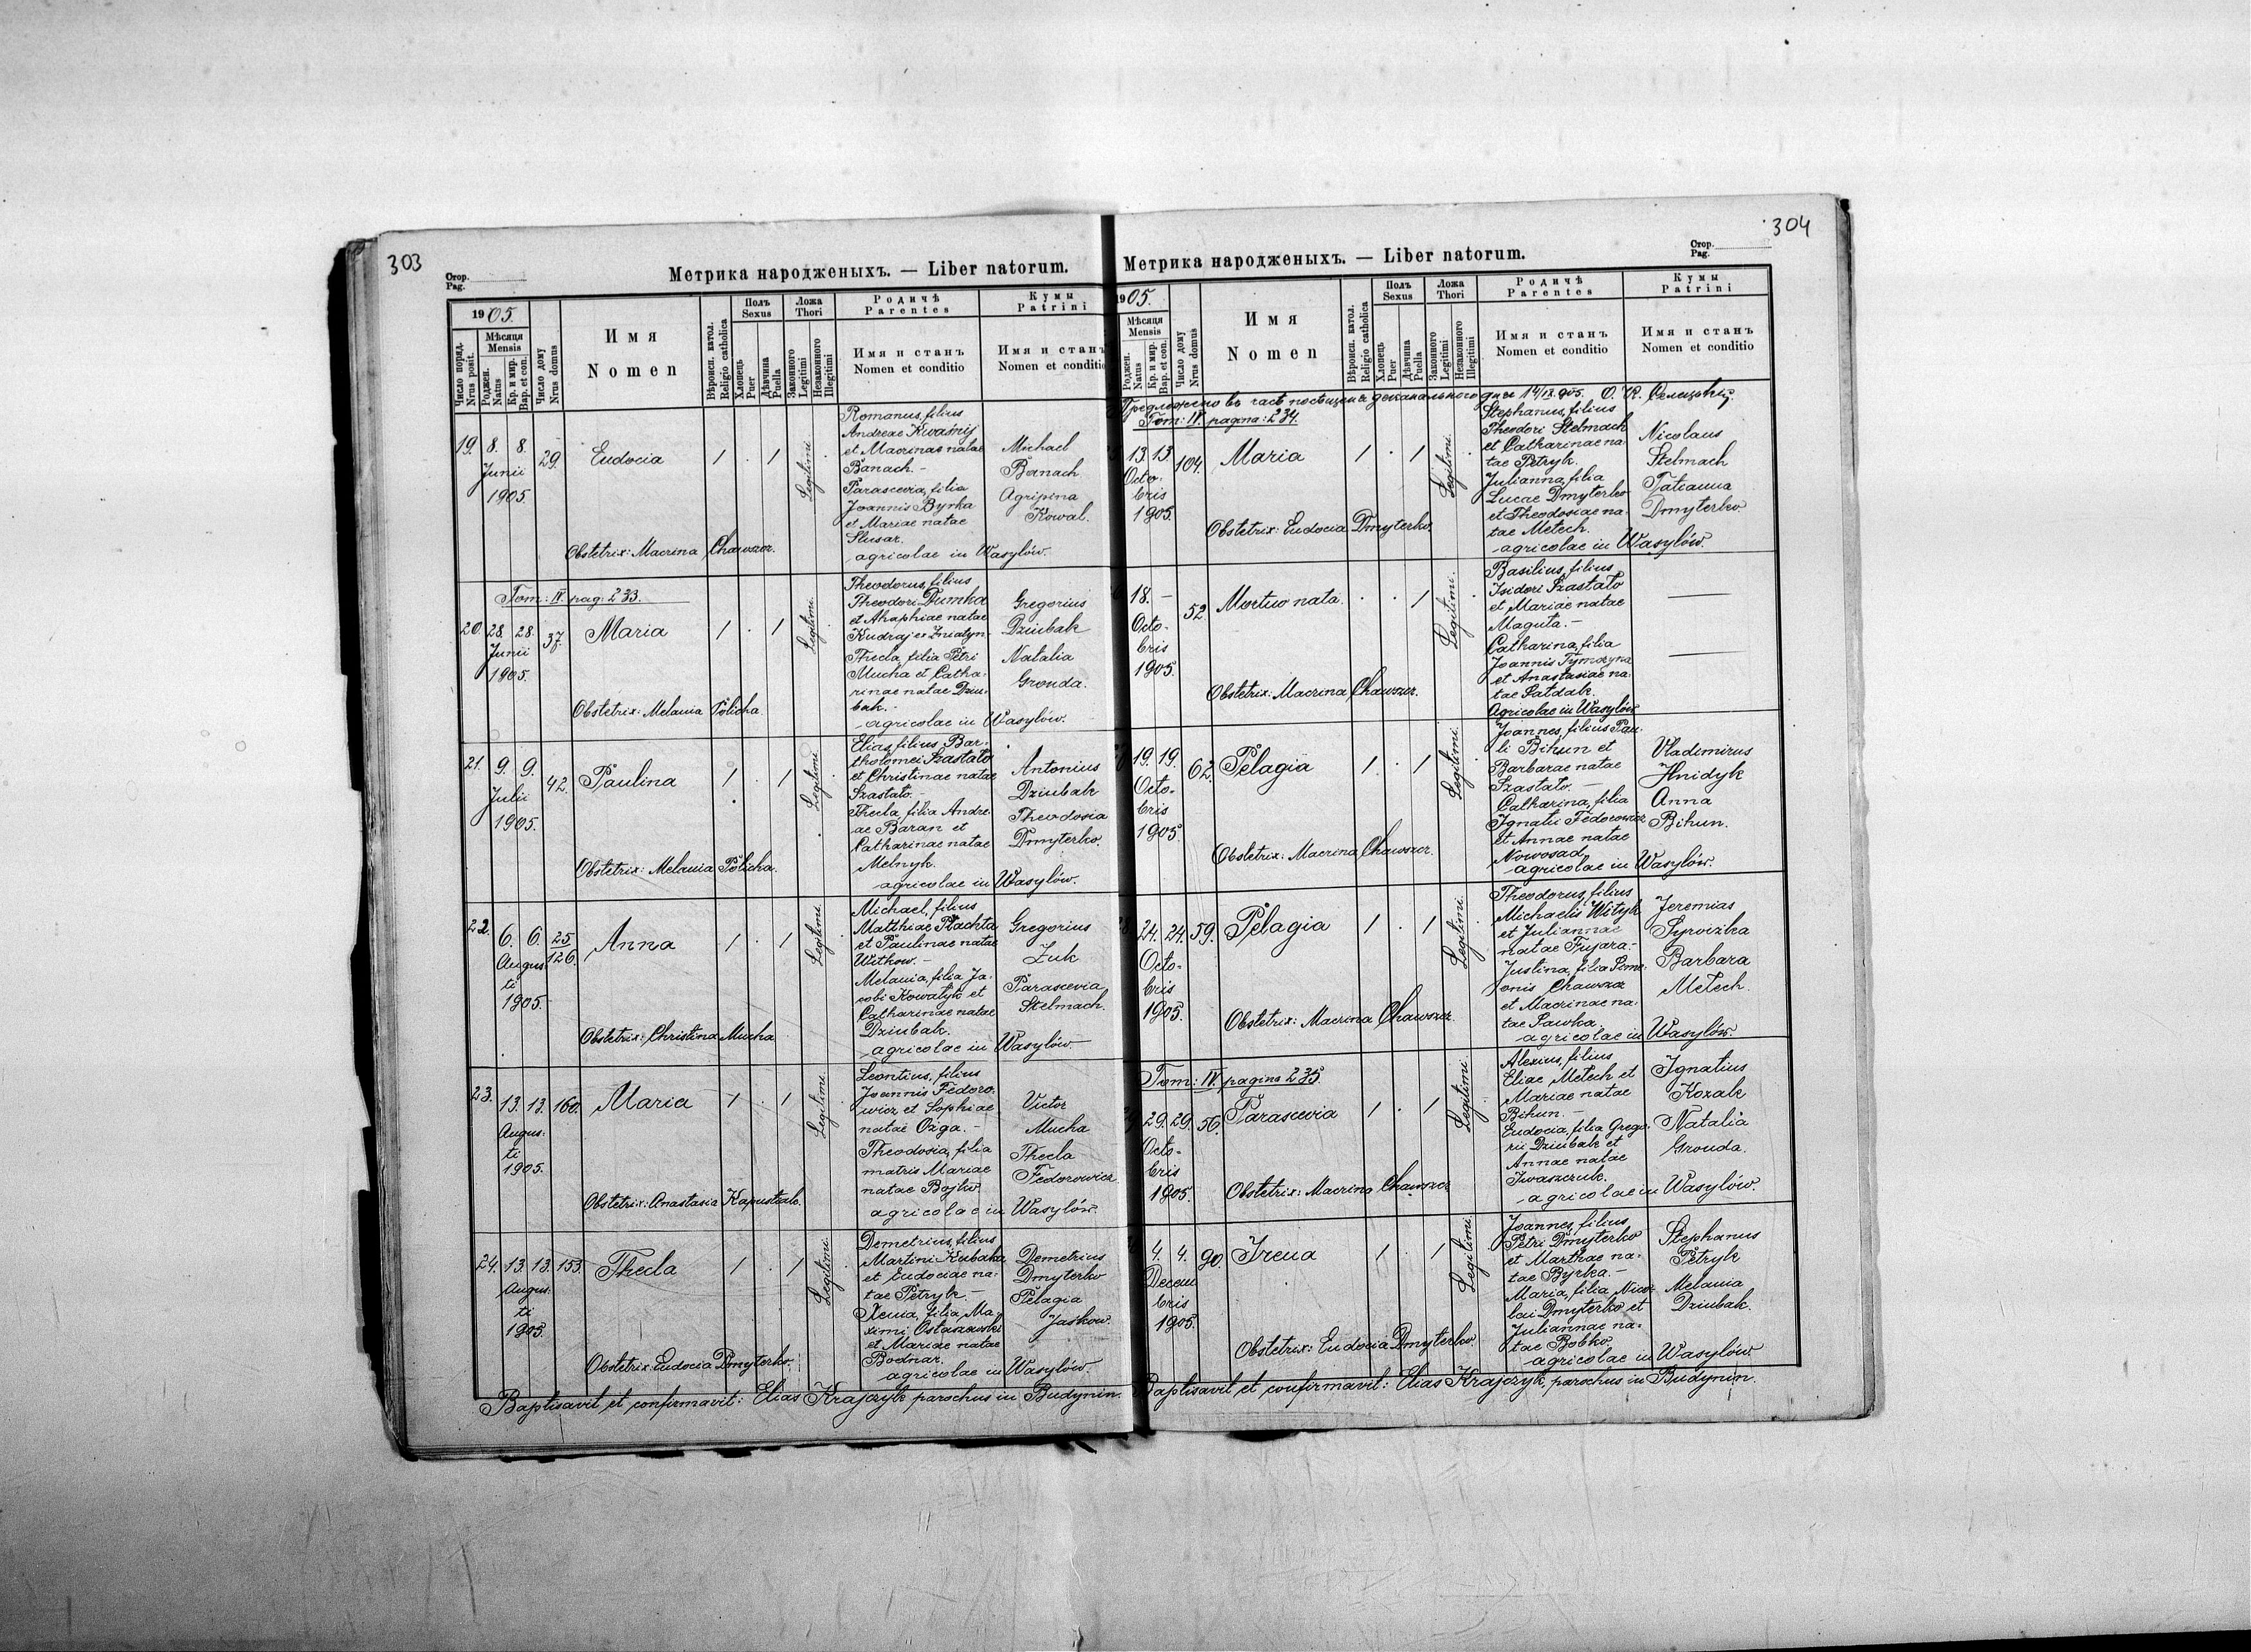 303
Стор.
Pag.
Метрика народженыхъ. — Liber natorum.
1905.
Число поряд.
Nrus posit.
Мѣсяця
Mensis
Роджен.
Natus
Кр. и мир.
Bap. et con.
Число дому
Nrus domus
Имя
Nomen
Вѣроисп. катол.
Religio catholica
Полъ
Sexus
Хлопець
Puer
Дѣвчина
Puella
Ложа
Thori
Законного
Legitimi
Незаконного
Illegitimi
Родичѣ
Parentes
Имя и станъ
Nomen et conditio
Кумы
Patrini
Имя и станъ
Nomen et conditio
19. 8. 8. 29. Eudocia 1 . 1 Legitimi .
Junii
1905.
Romanus, filius
Andreae Kwaśnij
et Macrinae natae
Banach. -
Parascevia, filia
Joannis Byrka
et Mariae natae
Slusar.
agricolae in Wasylów.
Michael
Banach
Agripina
Kowal.
Obstetrix: Macrina Chawszcz.
Tom: IV. pag: 233.
20. 28. 28. 37. Maria 1 . 1 Legitimi.
Junii
1905.
Theodorus, filius
Theodori Dumka
et Ahaphiae natae
Kudraj ex Żniatyn-
Thecla, filia Petri
Mucha et Catha-
rinae natae Dziu-
bak. -
agricolae in Wasylów.
Gregorius
Dziubak
Natalia
Gronda.
Obstetrix: Melania Policha
21. 9. 9. 42. Paulina 1 . 1 Legitimi.
Julii
1905.
Elias, filius Bar-
tholomei Szastało
et Christinae natae
Szastało. -
Thecla, filia Andre-
ae Baran et
Catharinae natae
Melnyk.
agricolae in Wasylów.
Antonius
Dziubak
Theodosia
Dmyterko.
Obstetrix: Melania Policha.
22. 6. 6. 25/126. Anna 1 . 1 Legitimi.
Augus-
ti
1905.
Michael, filius
Matthiae Płachta
et Paulinae natae
Witkow. -
Melania, filia Ja-
cobi Kowalyk et
Catharinae natae
Dziubak.
agricolae in Wasylów.
Gregorius
Żuk
Parascevia
Stelmach.
Obstetrix: Christina Mucha
23. 13. 13. 160. Maria 1 . 1 Legitimi.
Augus-
ti
1905.
Leontius, filius
Joannis Fedoro-
wicz et Sophiae
natae Ożga. -
Theodosia, filia
matris Mariae
natae Bojko
agricolae in Wasylów.
Victor
Mucha
Thecla
Fedorowicz
Obstetrix: Anastasia Kapustak.
24. 13. 13. 153. Thecla 1 . 1 Legitimi.
Augus-
ti
1905.
Demetrius, filius
Martini Kubaka
et Eudociae na-
tae Petryk -
Xenia, filia Ma-
ximi Ostaszewski
et Mariae natae
Bodnar.
agricolae in Wasylów.
Demetrius
Dmyterko
Pelagia
Jaśkow.
Obstetrix: Eudocia Dmyterko.
Baptisavit et confirmavit: Elias Krajczyk parochus in Budynin.
304
Стор.
Pag.
Метрика народженыхъ. — Liber natorum.
1905.
Мѣсяця
Mensis
Роджен.
Natus
Кр. и мир.
Bap. et con.
Число дому
Nrus domus
Имя
Nomen
Вѣроисп. катол.
Religio catholica
Полъ
Sexus
Хлопець
Puer
Дѣвчина
Puella
Ложа
Thori
Законного
Legitimi
Незаконного
Illegitimi
Родичѣ
Parentes
Имя и станъ
Nomen et conditio
Кумы
Patrini
Имя и станъ
Nomen et conditio
Предложено въ часѣ посѣщенія деканального дня 14/IX 905.
Tom: IV. pagina: 234.
13. 13. 104. Maria 1 . 1 Legitimi.
Octo-
bris
1905.
Stephanus, filius
Theodori Stelmach
et Catharinae na-
tae Petryk.
Julianna, filia
Lucae Dmyterko
et Theodosiae na-
tae Metech.
agricolae in Wasylów.
Nicolaus
Stelmach
Tatianna
Dmyterko.
Obstetrix: Eudocia Dmyterko.
18. - 52. Mortuo nata . . 1 Legitimi.
Octo-
bris
1905.
Basilius, filius
Isidori Szastało
et Mariae natae
Maguta. -
Catharina, filia
Joannis Tymczyna
et Anastasiae na-
tae Sałdak.
Agricolae in Wasylów
Obstetrix: Macrina Chawszcz.
19. 19. 62. Pelagia 1 . 1 Legitimi.
Octo-
bris
1905.
Joannes, filius Pau-
li Bihun et
Barbarae natae
Szastało. -
Catharina, filia
Ignatii Fedorowicz
et Annae natae
Nowosad,
agricolae in Wasylów.
Vladimirus
Hnidyk
Anna
Bihun.
Obstetrix: Macrina Chawszcz.
24. 24. 59. Pelagia 1 . 1 Legitimi.
Octo-
bris
1905.
Theodorus, filius
Michaelis Wityk
et Juliannae
natae Fujara. -
Justina, filia Sime-
onis Chawszcz
et Macrinae na-
tae Sawka,
agricolae in Wasylów.
Jeremias
Syroizka
Barbara
Metech.
Obstetrix: Macrina Chawszcz.
Tom: IV. pagina 235.
29. 29. 56. Parascevia 1 . 1 Legitimi.
Octo-
bris
1905.
Alexius, filius
Eliae Metech et
Mariae natae
Bihun. -
Eudocia, filia Grego-
rii Dziubak et
Annae natae
Iwaszczuk.
agricolae in Wasylów.
Ignatius
Kozak
Natalia
Gronda.
Obstetrix: Macrina Chawszcz
4. 4. 90. Irena 1 . 1 Legitimi.
Decem
bris
1905.
Joannes, filius
Petri Dmyterko
et Marthae na-
tae Byrka. -
Maria, filia Nico-
lai Dmyterko et
Juliannae na-
tae Bobko.
agricolae in Wasylów
Stephanus
Petryk
Melania
Dziubak.
Obstetrix: Eudocia Dmyterko.
Baptisavit et confirmavit: Elias Krajczyk, parochus in Budynin.